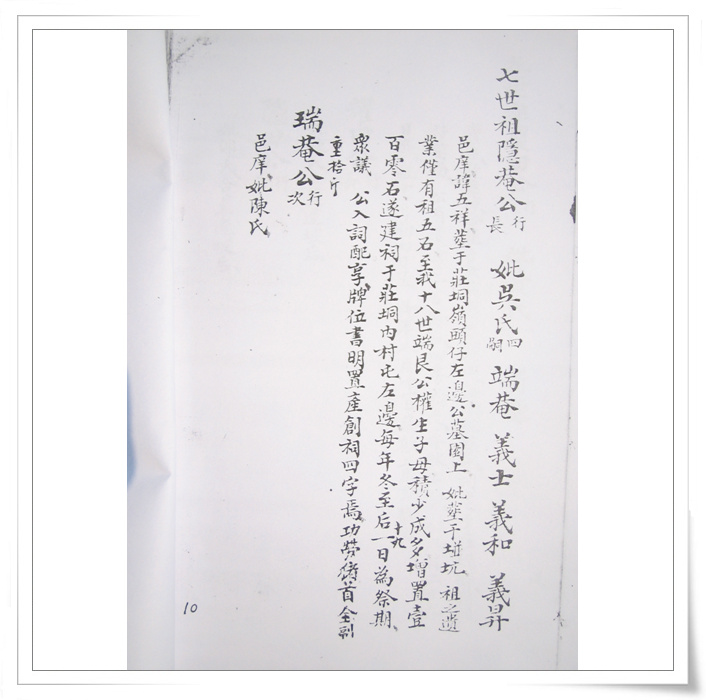 七世祖隱菴公行長 妣吳氏四嗣 端菴 義士 義和 義昇
邑庠諱五祥塟于莊垌嶺頭仔左邊公墓園上 妣塟于坑 祖之遺
業僅有租五石至我十八世端艮公權生子母積少成多增置壹
百零石遂建祠于莊垌內村屯左邊每年冬至后一日為祭期
十九
衆議 公入詞配享牌位書明置產創祠四字焉功勞償首全副
重拾斤
瑞菴公行次
邑庠妣陳氏
10